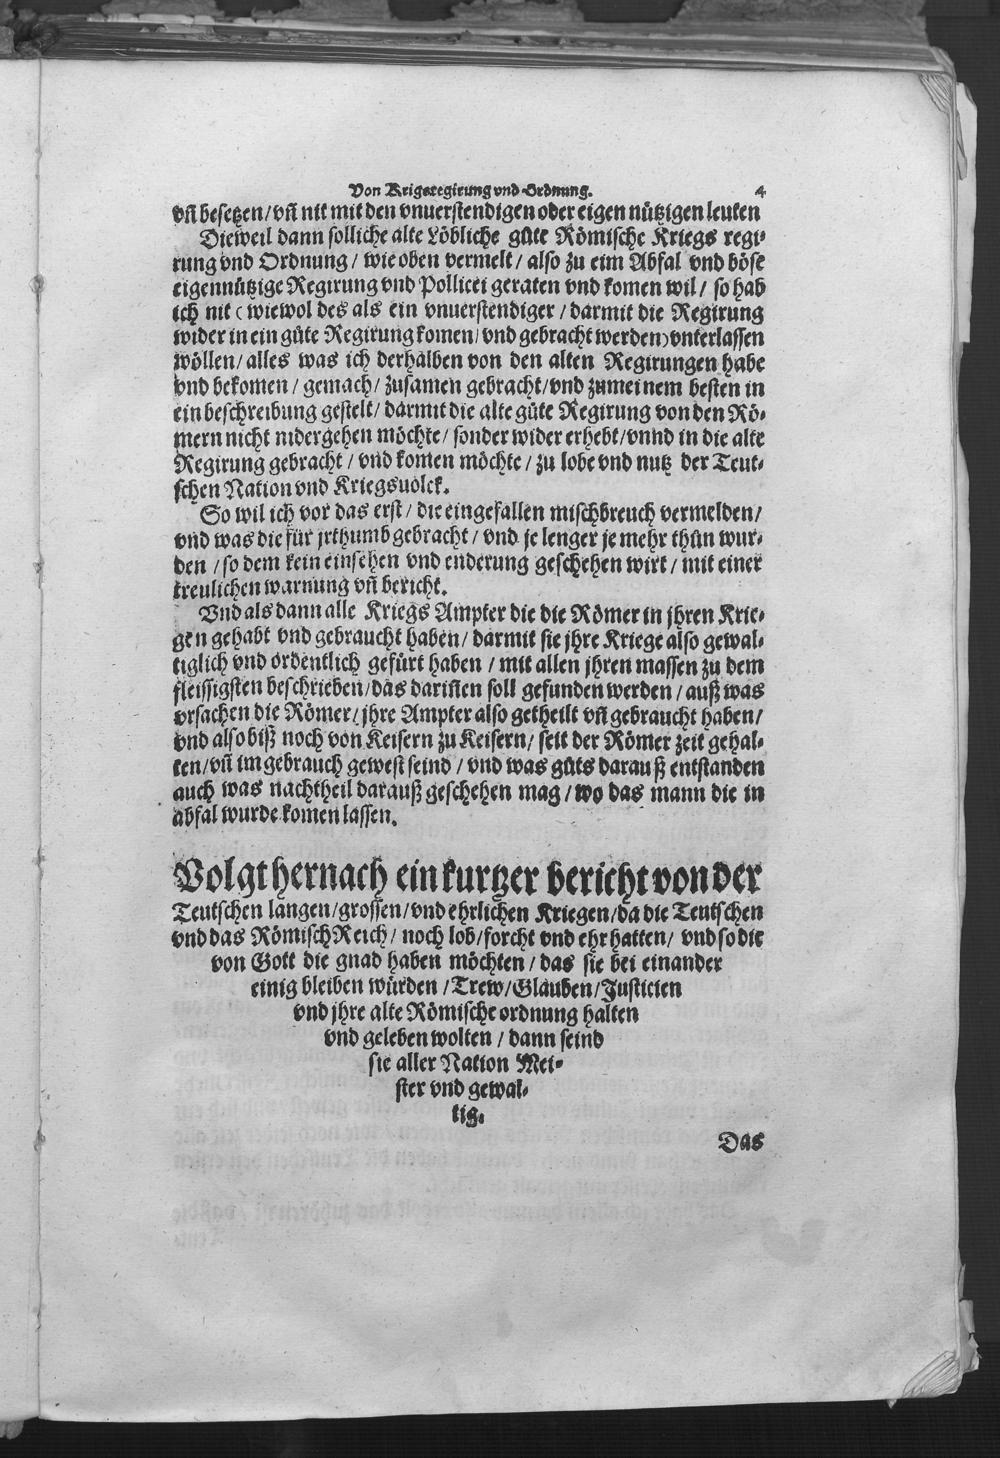 Von Krigsregirung vnd Ordnung. 4
vñ besetzen / vñ nit mit den vnuerstendigen oder eigen nützigen leuten
Dieweil dann solliche alte Löbliche gůte Römische Kriegs regi-
rung vnd Ordnung / wie oben vermelt / also zu eim Abfal vnd böse
eigennützige Regirung vnd Pollicei geraten vnd komen wil / so hab
ich nit (wiewol des als ein vnuerstendiger / darmit die Regirung
wider in ein gůte Regirung komen / vnd gebracht werden) vnterlassen
wöllen / alles was ich derhalben von den alten Regirungen habe
vnd bekomen / gemach / zusamen gebracht / vnd zu meinem besten in
ein beschreibung gestelt / darmit die alte gůte Regirung von den Rö-
mern nicht nidergehen möchte / sonder wider erhebt / vnnd in die alte
Regirung gebracht / vnd komen möchte / zu lobe vnd nutz der Teut-
schen Nation vnd Kriegsuolck.
So wil ich vor das erst / die eingefallen mischbreuch vermelden /
vnd was die für jrthumb gebracht / vnd je lenger je mehr thůn wur-
den / so dem kein einsehen vnd enderung geschehen wirt / mit einer
treulichen warnung vñ bericht.
Vnd als dann alle Kriegs Ampter die die Römer in jhren Krie-
gen gehabt vnd gebraucht haben / darmit sie jhre Kriege also gewal-
tiglich vnd ordentlich gefürt haben / mit allen jhren massen zu dem
fleissigsten beschrieben / das dariñen soll gefunden werden / auß was
vrsachen die Römer / jhre Ampter also getheilt vñ gebraucht haben /
vnd also biß noch von Keisern zu Keisern / seit der Römer zeit gehal-
ten / vñ im gebrauch gewest seind / vnd was gůts darauß entstanden
auch was nachtheil darauß geschehen mag / wo das mann die in
abfal wurde komen lassen.
Volgt hernach ein kurtzer bericht von der
Teutschen langen / grossen / vnd ehrlichen Kriegen / da die Teutschen
vnd das Römisch Reich / noch lob / forcht vnd ehr hatten / vnd so die
von Gott die gnad haben möchten / das sie bei einander
einig bleiben würden / Trew / Glauben / Justicien
vnd jhre alte Römische ordnung halten
vnd geleben wolten / dann seind
sie aller Nation Mei-
ster vnd gewal-
tig.
Das